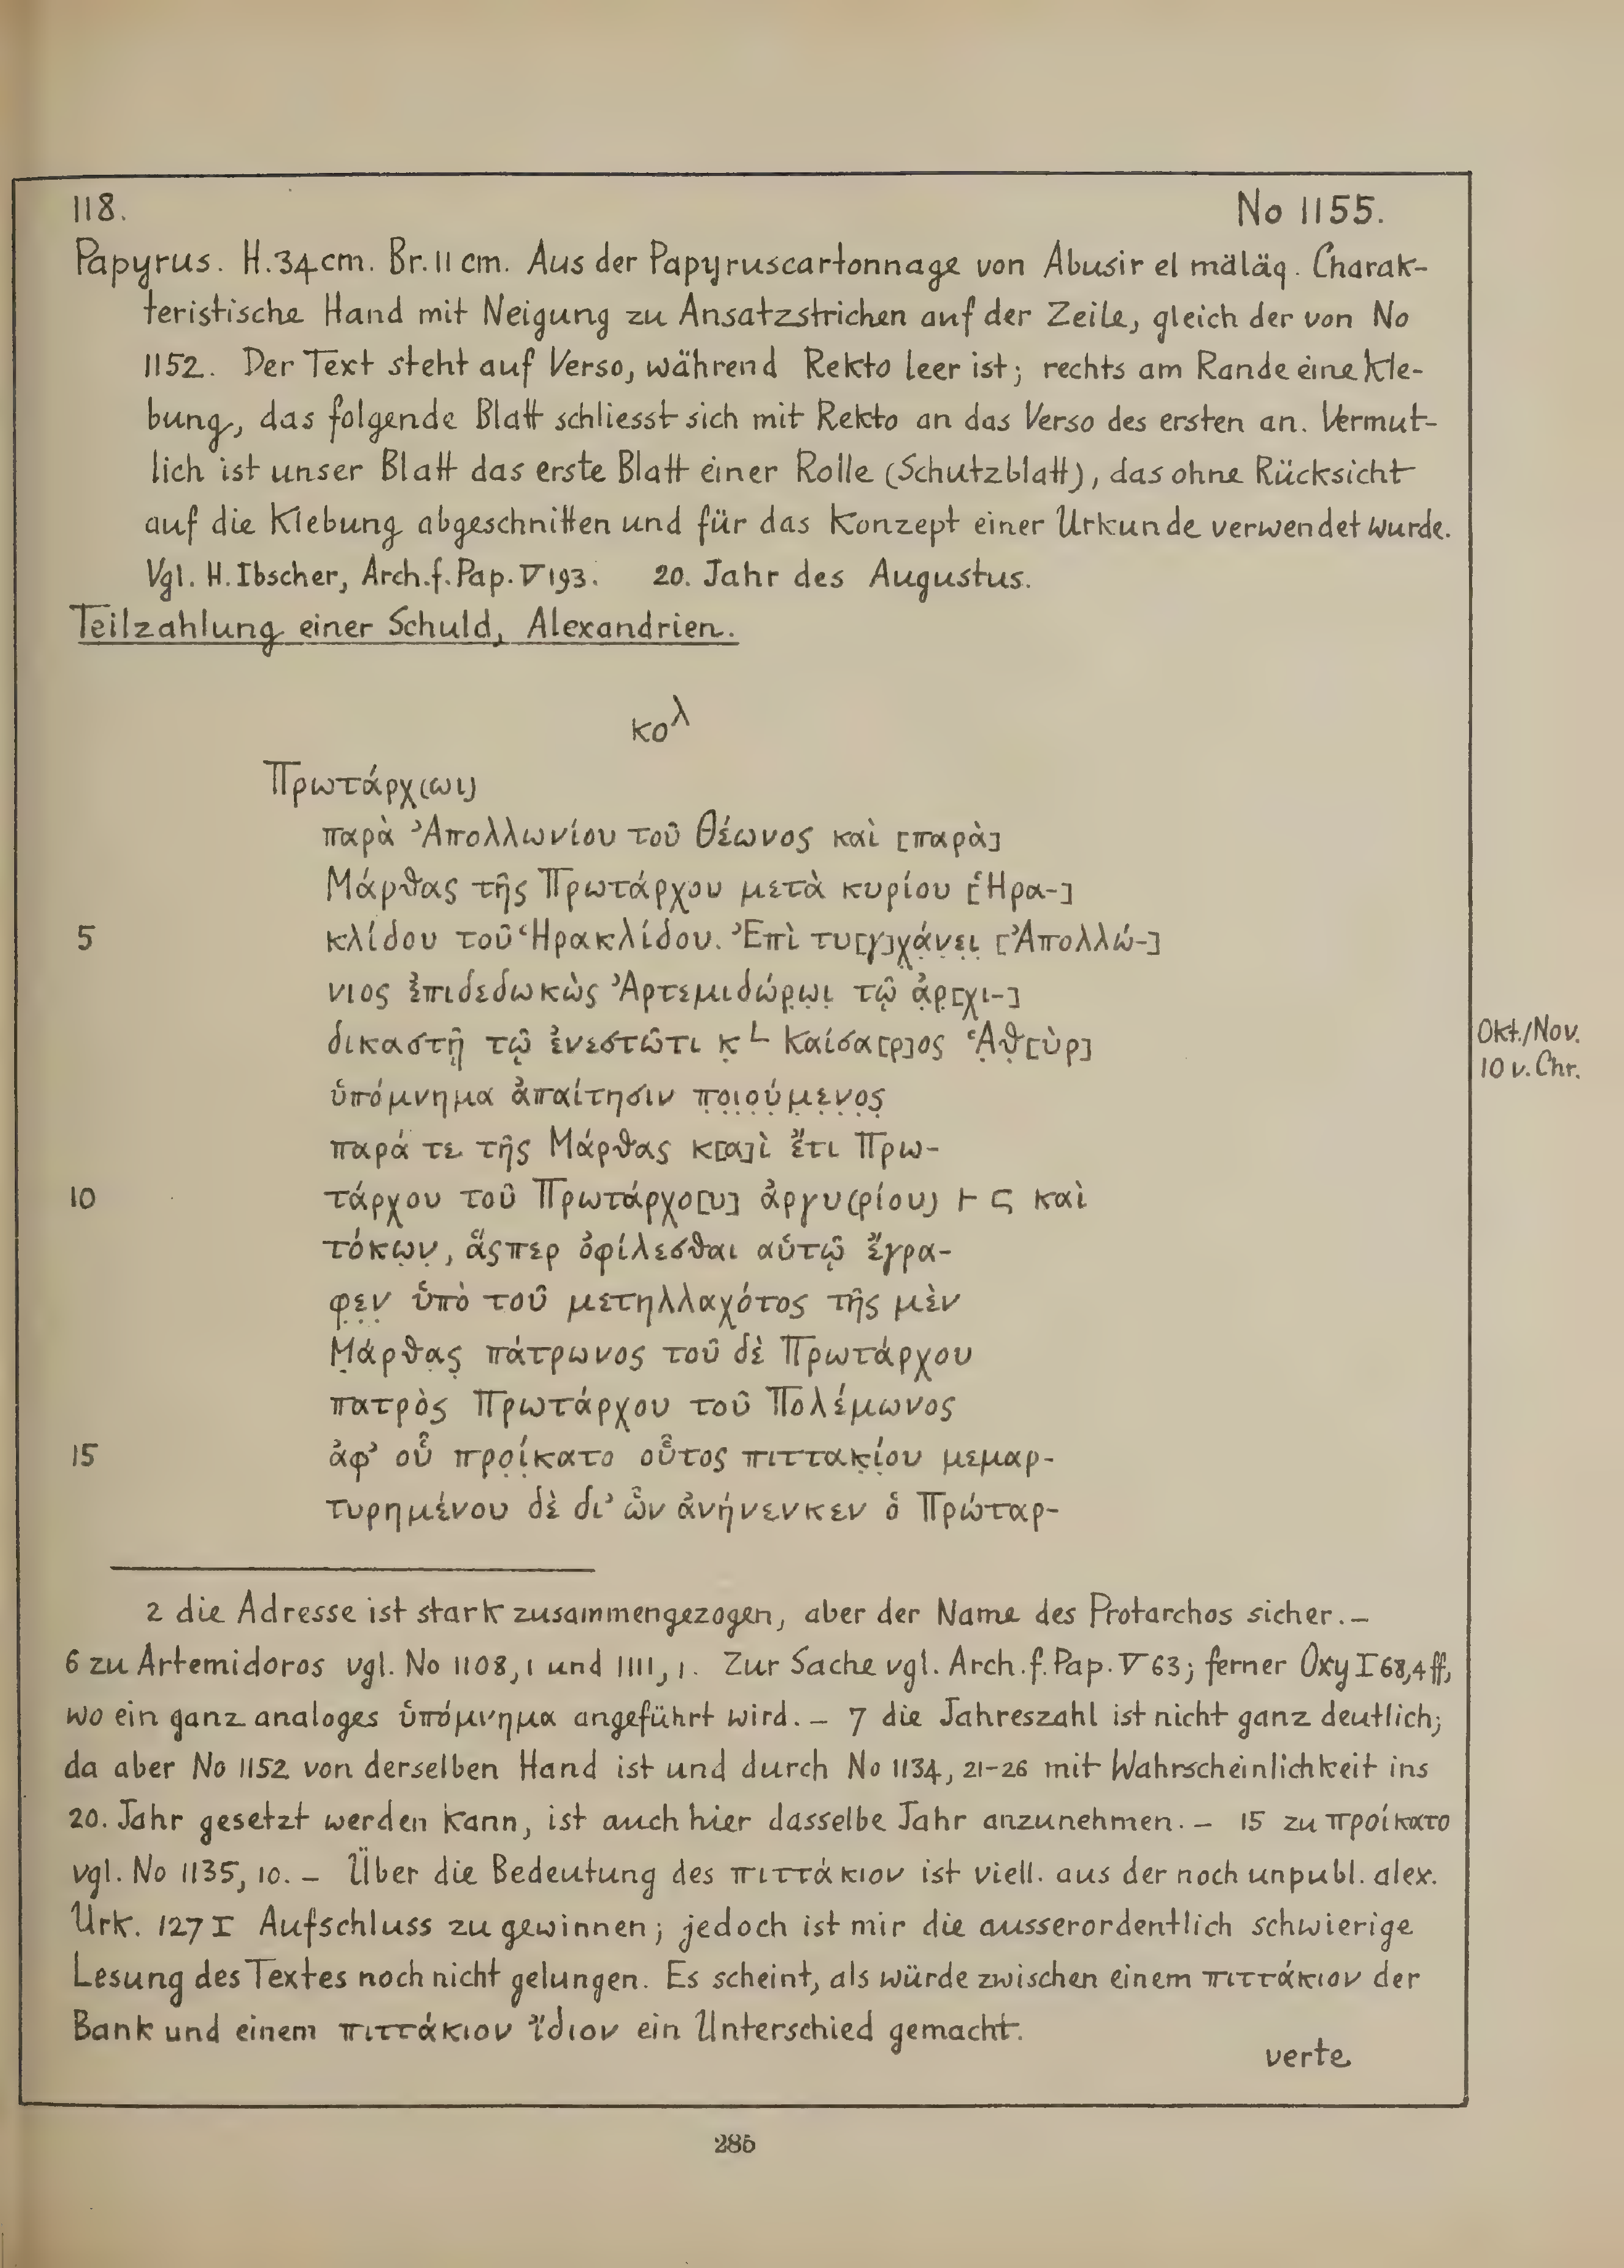 118. No 1155.
Papyrus. H. 34 cm. Br. 11 cm. Aus der Papyruscartonnage von Abusir el mäläq. Charak-
teristische Hand mit Neigung zu Ansatzstrichen auf der Zeile, gleich der von No
1152. Der Text steht auf Verso, während Rekto leer ist; rechts am Rande eine Kle-
bung, das folgende Blatt schliesst sich mit Rekto an das Verso des ersten an. Vermut-
lich ist unser Blatt das erste Blatt einer Rolle (Schutzblatt), das ohne Rücksicht
auf die Klebung abgeschnitten und für das Konzept einer Urkunde verwendet wurde.
Vgl. H. Ibscher, Arch. f. Pap. V 193. 20. Jahr des Augustus.
Teilzahlung einer Schuld, Alexandrien.
κολ
Πρωτάρχ(ωι)
παρὰ Ἀπολλωνίου τοῦ Θέωνος καὶ [παρὰ]
Μάρθας τῆς Πρωτάρχου μετὰ κυρίου [Ἡρα-]
5 κλίδου τοῦ Ἡρακλίδου. Ἐπὶ τυ[γ]χ̣ά̣ν̣ε̣ι̣ [Ἀπολλώ-]
νιος ἐπιδεδωκὼς Ἀρτεμιδώρ̣ω̣ι̣ τῷ ἀ̣ρ̣[χι-]
δικαστῇ̣ τῷ ἐνεστῶτι κ̣ L Καίσα[ρ]ος Ἁ̣θ̣[ὺρ]
Okt./Nov.
10 v. Chr.
ὑπόμνημα ἀπαίτησιν π̣ο̣ι̣ο̣ύ̣μ̣ε̣ν̣ο̣ς̣
παρά τε τῆς Μάρθας κ[α]ὶ ἔτι Πρω-
10 τάρχου τοῦ Πρωτάρχο[υ] ἀργυ(ρίου) ⊢ ϛ καὶ
τόκω̣ν̣, ἅςπερ ὀφίλεσθαι αὑτῷ ἔγρα-
φ̣ε̣ν̣ ὑπὸ τοῦ μετηλλαχότος τῆς μὲν
Μ̣άρθα̣ς̣ πάτρωνος τοῦ δὲ Πρωτάρχου
πατρὸς Πρωτάρχου τοῦ Πολέμωνος
15 ἀφ' οὗ πρ̣ο̣ί̣κατο οὗτος πιττακ̣ί̣ου μεμαρ-
τυρημένου δὲ δι' ὧν ἀνήνενκεν ὁ Πρώταρ-
2 die Adresse ist stark zusammengezogen, aber der Name des Protarchos sicher. –
6 zu Artemidoros vgl. No 1108, 1 und 1111, 1. Zur Sache vgl. Arch. f. Pap. V 63; ferner Oxy I 68, 4 ff,
wo ein ganz analoges ὑπόμνημα angeführt wird. – 7 die Jahreszahl ist nicht ganz deutlich;
da aber No 1152 von derselben Hand ist und durch No 1134, 21-26 mit Wahrscheinlichkeit ins
20. Jahr gesetzt werden kann, ist auch hier dasselbe Jahr anzunehmen. – 15 zu προίκατο
vgl. No 1135, 10. – Über die Bedeutung des πιττάκιον ist viell. aus der noch unpubl. alex.
Urk. 127 I Aufschluss zu gewinnen; jedoch ist mir die ausserordentlich schwierige
Lesung des Textes noch nicht gelungen. Es scheint, als würde zwischen einem πιττάκιον der
Bank und einem πιττάκιον ἴδιον ein Unterschied gemacht.
verte
285